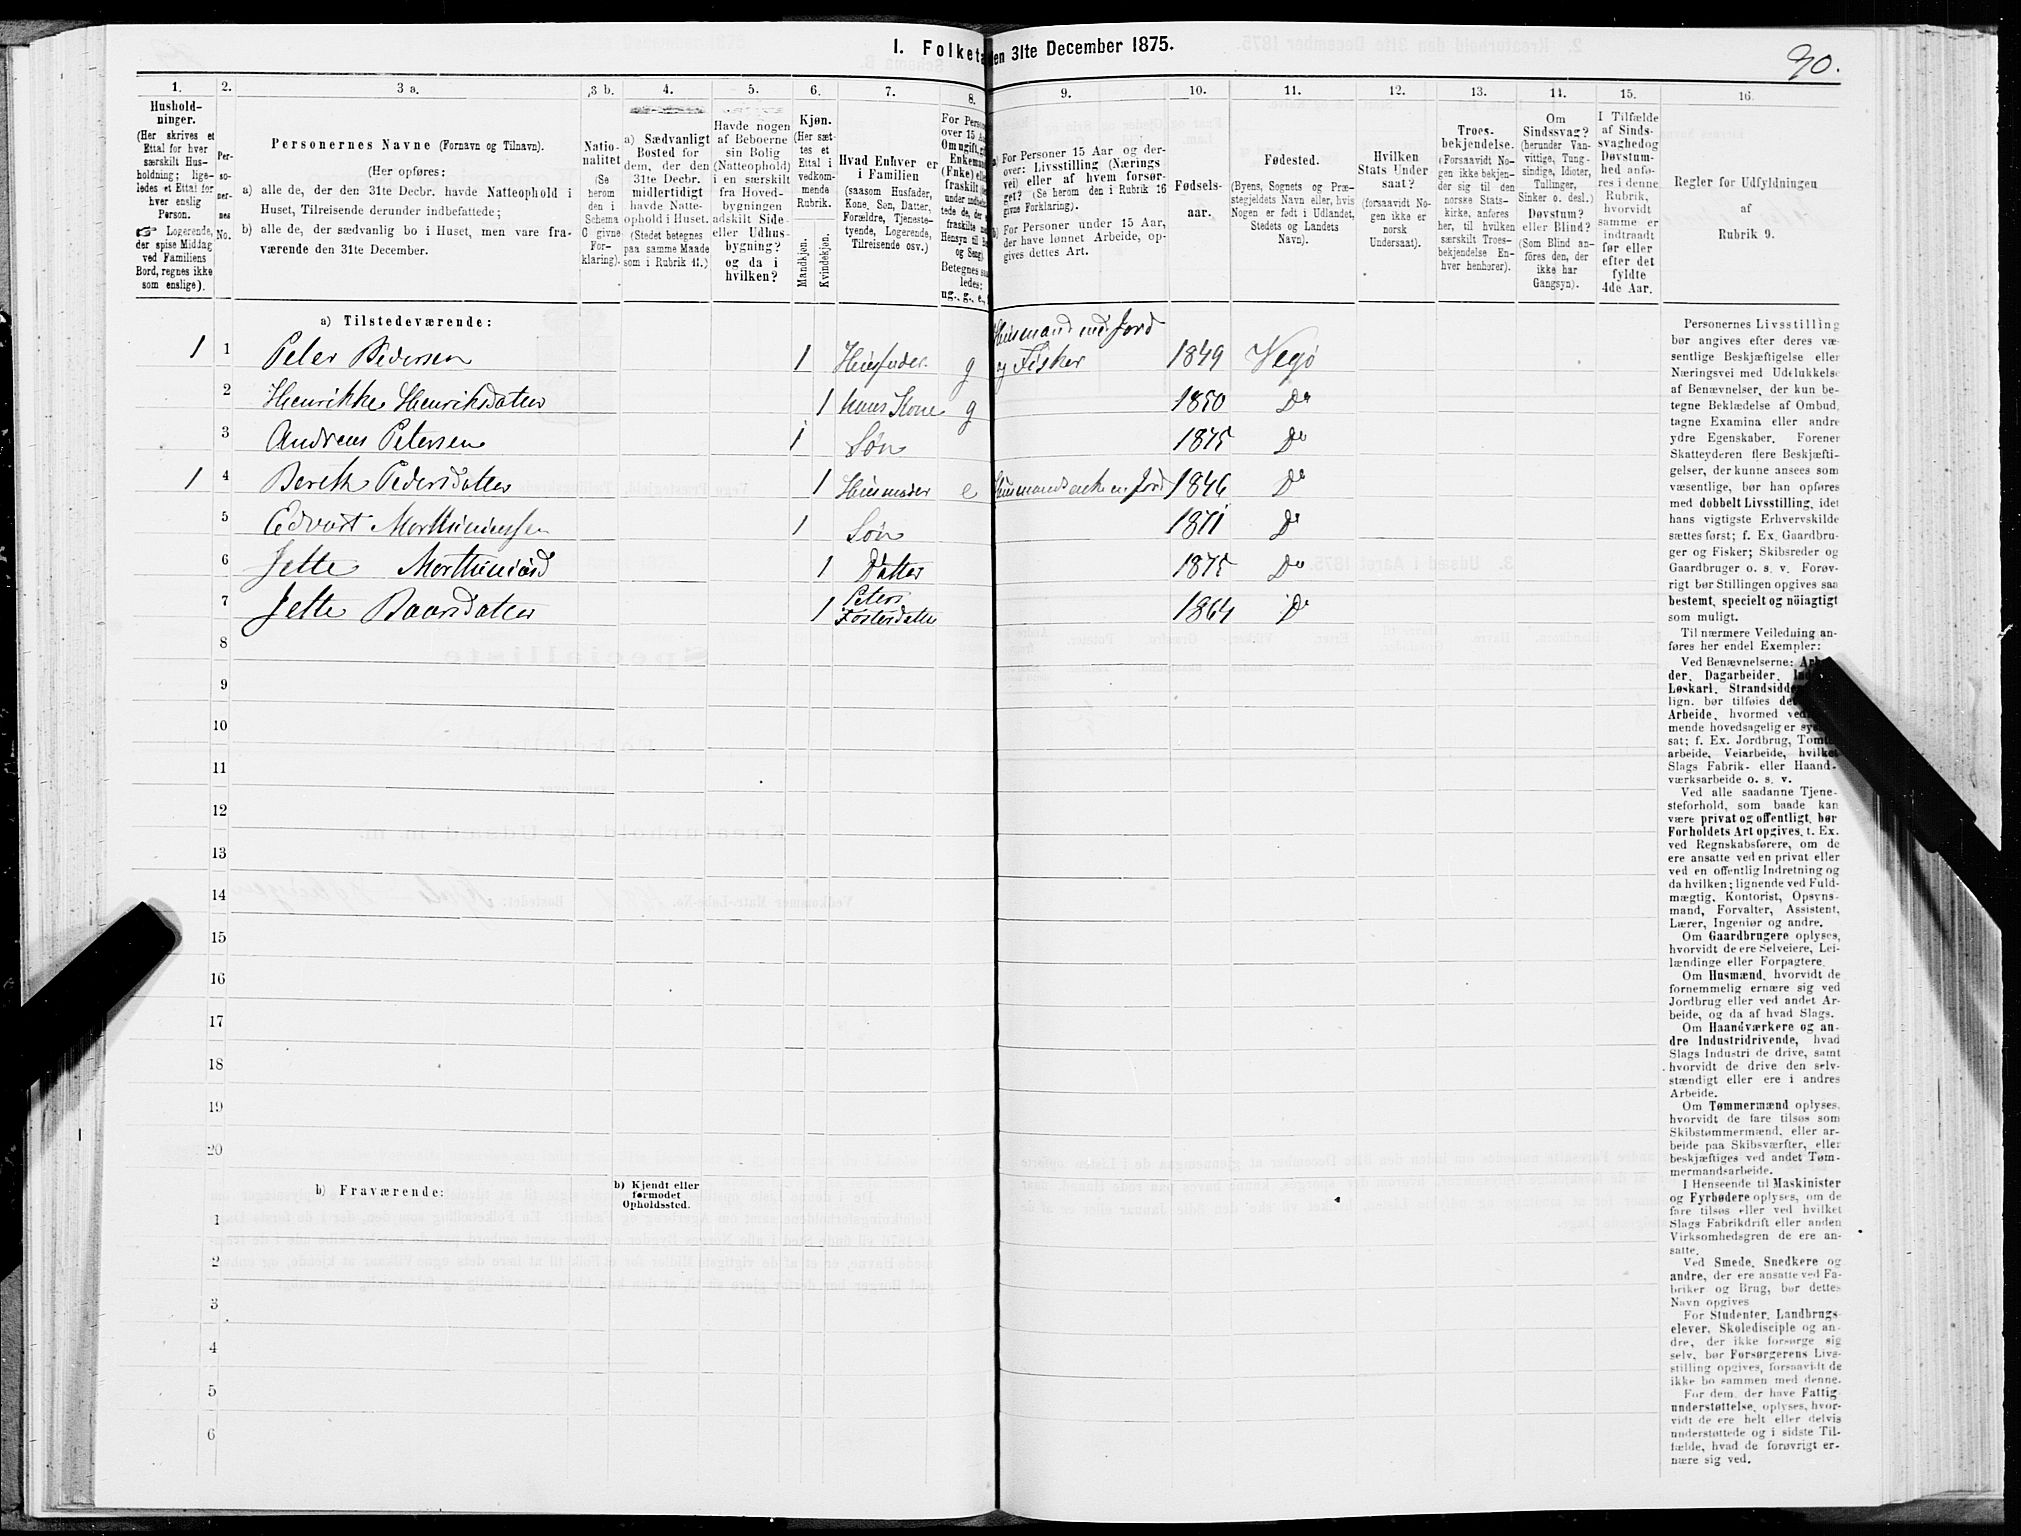 I. Folketæ
en 31te December 1875.
90.
1.
2.
3 a.
3 b.
4.
5.
6.
7.
8.
9.
10.
11.
12.
13.
14.
15.
16.
Hushold-
ninger.
(Her skrives et
Ettal for hver
særskilt Hus-
holdning; lige-
ledes et Ettal for
hver enslig
Person.
☞ Logerende,
der spise Middag
ved Familiens
Bord, regnes ikke
som enslige).
Per-
so-
ner-
nes
No.
Personernes Navne (Fornavn og Tilnavn).
(Her opføres:
a) alle de, der den 31te Decbr. havde Natteophold i
Huset, Tilreisende derunder indbefattede;
b) alle de, der sædvanlig bo i Huset, men vare fra-
værende den 31te December.
Natio-
nalitet
(Se
herom
den i
Schema
C givne
For-
klaring).
a) Sædvanligt
Bosted for
dem, der den
31te Decbr.
midlertidigt
havde Natte-
ophold i Huset.
(Stedet betegnes
paa samme Maade
som i Rubrik 11.)
Havde nogen
af Beboerne
sin Bolig
(Natteophold)
i en særskilt
fra Hoved-
bygningen
adskilt Side-
eller Udhus-
bygning?
og da i
hvilken?
Kjøn.
(Her sæt-
tes et
Ettal i
vedkom-
mende
Rubrik.
Mandkjøn.
Kvindekjøn.
Hvad Enhver er
i Familien
(saasom Husfader,
Kone, Søn, Datter,
Forældre, Tjeneste-
tyende, Logerende,
Tilreisende osv.)
For Person
over 15 Aa
Om ugift, gi
Enkeman
(Enke) elle
fraskilt
under indbefat-
tede de, der e
fraskilte m
Hensyn til B
og Seng)
Betegnes saa
ledes:
ug., g., e.,
a) For Personer 15 Aar og der-
over: Livsstilling (Nærings-
vei) eller af hvem forsør-
get? (Se herom den i Rubrik 16
givne Forklaring).
b) For Personer under 15 Aar,
der have lønnet Arbeide, op-
gives dettes Art.
Fødsels-
aar.
Fødested.
(Byens, Sognets og Præ-
stegjeldets Navn eller, hvis
Nogen er født i Udlandet,
Stedets og Landets
Navn).
Hvilken
Stats Under
saat?
(forsaavidt No-
gen ikke er
norsk
Undersaat).
Troes-
bekjendelse.
(Forsaavidt No-
gen ikke bekjen-
der sig til den
norske Stats-
kirke, anføres
her, til hvilken
særskilt Troes-
bekjendelse En-
hver henhører).
Om
Sindssvag?
(herunder Van-
vittige, Tung-
sindige, Idioter,
Tullinger,
Sinker o. desl.)
Døvstum?
eller Blind?
(Som Blind an-
føres den, der
ikke har
Gangsyn).
I Tilfælde
af Sinds-
svaghed og
Døvstum-
hed anfø-
res i denne
Rubrik,
hvorvidt
samme er
indtraadt
før eller
efter det
fyldte
4de Aar.
Regler for Udfyldningen
af
Rubrik 9.
a) Tilstedeværende:
1 1 Peter Pedersen 1 Huusfader g Huusmand med Jord og Fisker 1849 Vegø
2 Henrikke Henriksdatter 1 hans Kone g 1850 Do
3 Andreas Petersen 1 Søn 1875 Do
1 4 Bereth Pedersdatter 1 Huusmoder e 1846 Do
5 Edvart 1 Søn 1871 Do
6 Jette 1 Datter 1875 Do
7 Jette Baarsdatter 1 Peters Fosterdatter 1864 Do
8
9
10
11
12
13
14
15
16
17
18
19
20
b) Fraværende:
b) Kjendt eller
formodet
Opholdssted.
1
2
3
4
5
6
Personernes Livsstilling
bør angives efter deres væ-
sentlige Beskjæftigelse eller
Næringsvei med Udelukkelse
af Benævnelser, der kun be-
tegne Beklædelse af Ombud,
tagne Examina eller andre
ydre Egenskaber. Forener
Skatteyderen flere Beskjæfti-
gelser, der kunne ansees som
væsentlige, bør han opføres
med dobbelt Livsstilling, idet
hans vigtigste Erhvervskilde
sættes først; f. Ex. Gaardbru-
ger og Fisker; Skibsreder og
Gaardbruger o. s. v. Forøv-
rigt bør Stillingen opgives saa
bestemt, specielt og nöiagtigt
som muligt.
Til nærmere Veiledning an-
føres her endel Exempler:
Ved Benævnelserne: Arbei-
der, Dagarbeider, Inder
Løskarl, Strandsidder
lign. bør tilføies de
Arbeide, hvormed ved
mende hovedsagelig er sys
sat; f. Ex. Jordbrug, Tomt
arbeide, Veiarbeide, hvilket
Slags Fabrik- eller Haand-
værksarbeide o. s. v.
Ved alle saadanne Tjene-
steforhold, som baade kan
være privat og offentligt, bør
Forholdets Art opgives, t. Ex.
ved Regnskabsførere, om de
ere ansatte ved en privat eller
ved en offentlig Indretning og
da hvilken; lignende ved Fuld-
mægtig, Kontorist, Opsyns-
mand, Forvalter, Assistent,
Lærer, Ingeniør og andre.
Om Gaardbrugere oplyses,
hvorvidt de ere Selveiere, Lei-
lændinge eller Forpagtere.
Om Husmænd, hvorvidt de
fornemmelig ernære sig ved
Jordbrug eller ved andet Ar-
beide, og da af hvad Slags.
Om Haandværkere og an-
dre Industridrivende, hvad
Slags Industri de drive, samt
hvorvidt de drive den selv-
stændigt eller ere i andres
Arbeide.
Om Tømmermænd oplyses,
hvorvidt de fare tilsøs som
Skibstømmermænd, eller ar-
beide paa Skibsværfter, eller
beskjæftiges ved andet Tøm-
mermandsarbeide.
I Henseende til Maskinister
og Fyrbødere oplyses, om de
fare tilsøs eller ved hvilket
Slags Fabrikdrift eller anden
Virksomhedsgren de ere an-
satte.
Ved Smede, Snedkere og
andre, der ere ansatte ved Fa-
briker og Brug, bør dettes
Navn opgives
For Studenter, Landbrugs-
elever, Skoledisciple og an-
dre, der ikke forsørge sig
selv, bør Forsørgerens Livs-
stilling opgives, forsaavidt de
ikke bo sammen med denne.
For dem, der have Fattig-
understøttelse, oplyses, hvor-
vidt de ere helt eller delvis
understøttede og i sidste Til-
fælde, hvad de forøvrigt er-
nære sig ved.